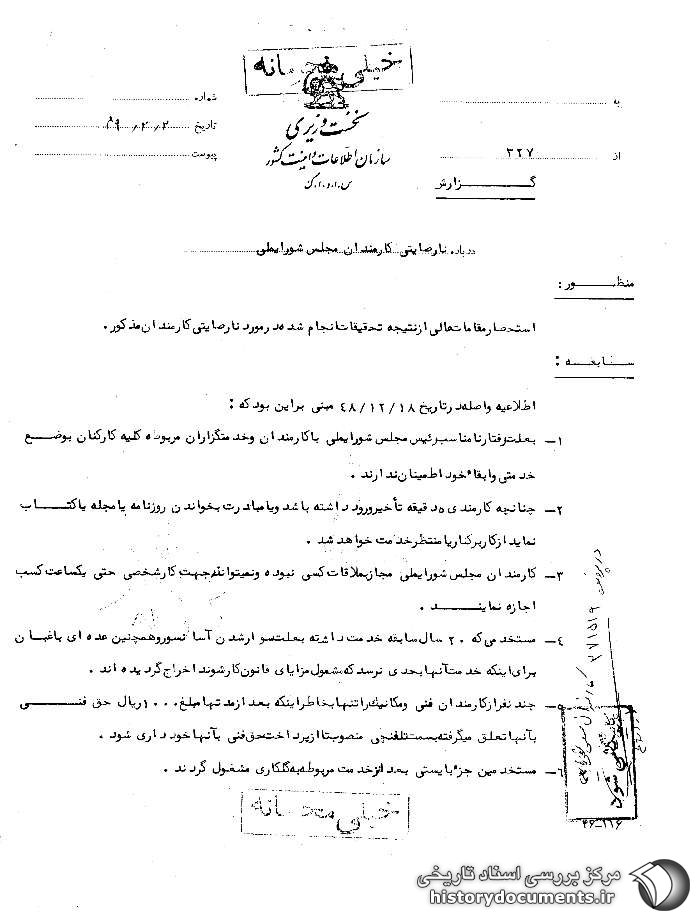 خیلی محرمانه
به
شماره
نخست وزیری
تاریخ ۴۹/۲/۲
سازمان اطلاعات و امنیت کشور
از ۳۲۷
پیوست
س.ا.و.ا.ک
گزارش
درباره نارضایتی کارمندان مجلس شورایملی
منظور :
استحضار مقامات عالی از نتیجه تحقیقات انجام شده در مورد نارضایتی کارمندان مذکور .
سابقه :
اطلاعیه واصله در تاریخ ۴۸/۱۲/۱۸ مبنی براین بود که :
۱- بعلت رفتار نامناسب رئیس مجلس شورایملی با کارمندان وخدمتگزاران مربوطه کلیه کارکنان بوضع
خدمتی وابقاء خود اطمینان ندارند .
۲- چنانچه کارمندی ۵ دقیقه تأخیر ورود داشته باشد ویا مبادرت بخواندن روزنامه یا مجله یا کتاب
نماید از کار برکنار یا منتظر خدمت خواهد شد .
۳- کارمندان مجلس شورایملی مجاز بملاقات کسی نبوده ونمیتوانند جهت کار شخصی حتی یکساعت کسب
اجازه نمایند .
۴- مستخدمی که ۲۰ سال سابقه خدمت داشته بعلت سوار شدن آسانسور وهمچنین عده ای باغبان
برای اینکه خدمت آنها بحدی نرسد که مشمول مزایای قانون کار شوند اخراج گردیده اند .
۵- چند نفر از کارمندان فنی ومکانیک را تنها بخاطر اینکه بعد از مدتها مبلغ ۱۰۰۰ ریال حق فنی
بآنها تعلق میگرفته بسمت تلفنچی منصوب تا از پرداخت حق فنی بآنها خود داری شود .
۶- مستخدمین جزء بایستی بعد از خدمت مربوطه به گلکاری مشغول گردند .
در پرونده
۲۷۱۵۱۹
شود
۴۶-۱۱۶
خیلی محرمانه
مرکز بررسی اسناد تاریخی
historydocuments.ir